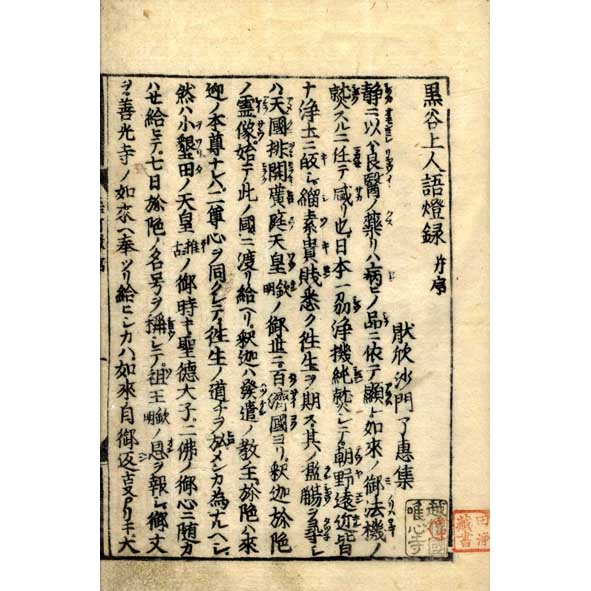 黒谷上人語燈録 并序
厭欣沙門了惠集
静ニ以レハ良醫ノ藥リハ病ヒノ品ニ依テ顯レ如来ノ御法機ノ
熟スルニ任テ咸リ也日本一刕浄機純熟シテ朝野遠近皆
ナ浄土ニ皈シ緇素貴賤悉ク徃生ヲ期ス其ノ濫觴ヲ尋レ
ハ天國排開廣庭天皇欽明ノ御世ニ百濟國ヨリ釈迦弥陀
ノ霊像始テ此ノ國ニ渡リ給ヘリ釈迦ハ發遣ノ教主弥陀ハ来
迎ノ本尊ナレハ二尊心ヲ同クシテ徃生ノ道チヲ弘メンカ為ナルヘシ
然ハ小墾田ノ天皇推古ノ御時キ聖徳太子二佛ノ御心ニ随カ
ハせ給ヒテ七日弥陀ノ名号ヲ稱シテ祖王欽明ノ恩ヲ報シ御文
ヲ善光寺ノ如来ヘ奉ツリ給ヒシカハ如来自御返
唯心寺
藏書